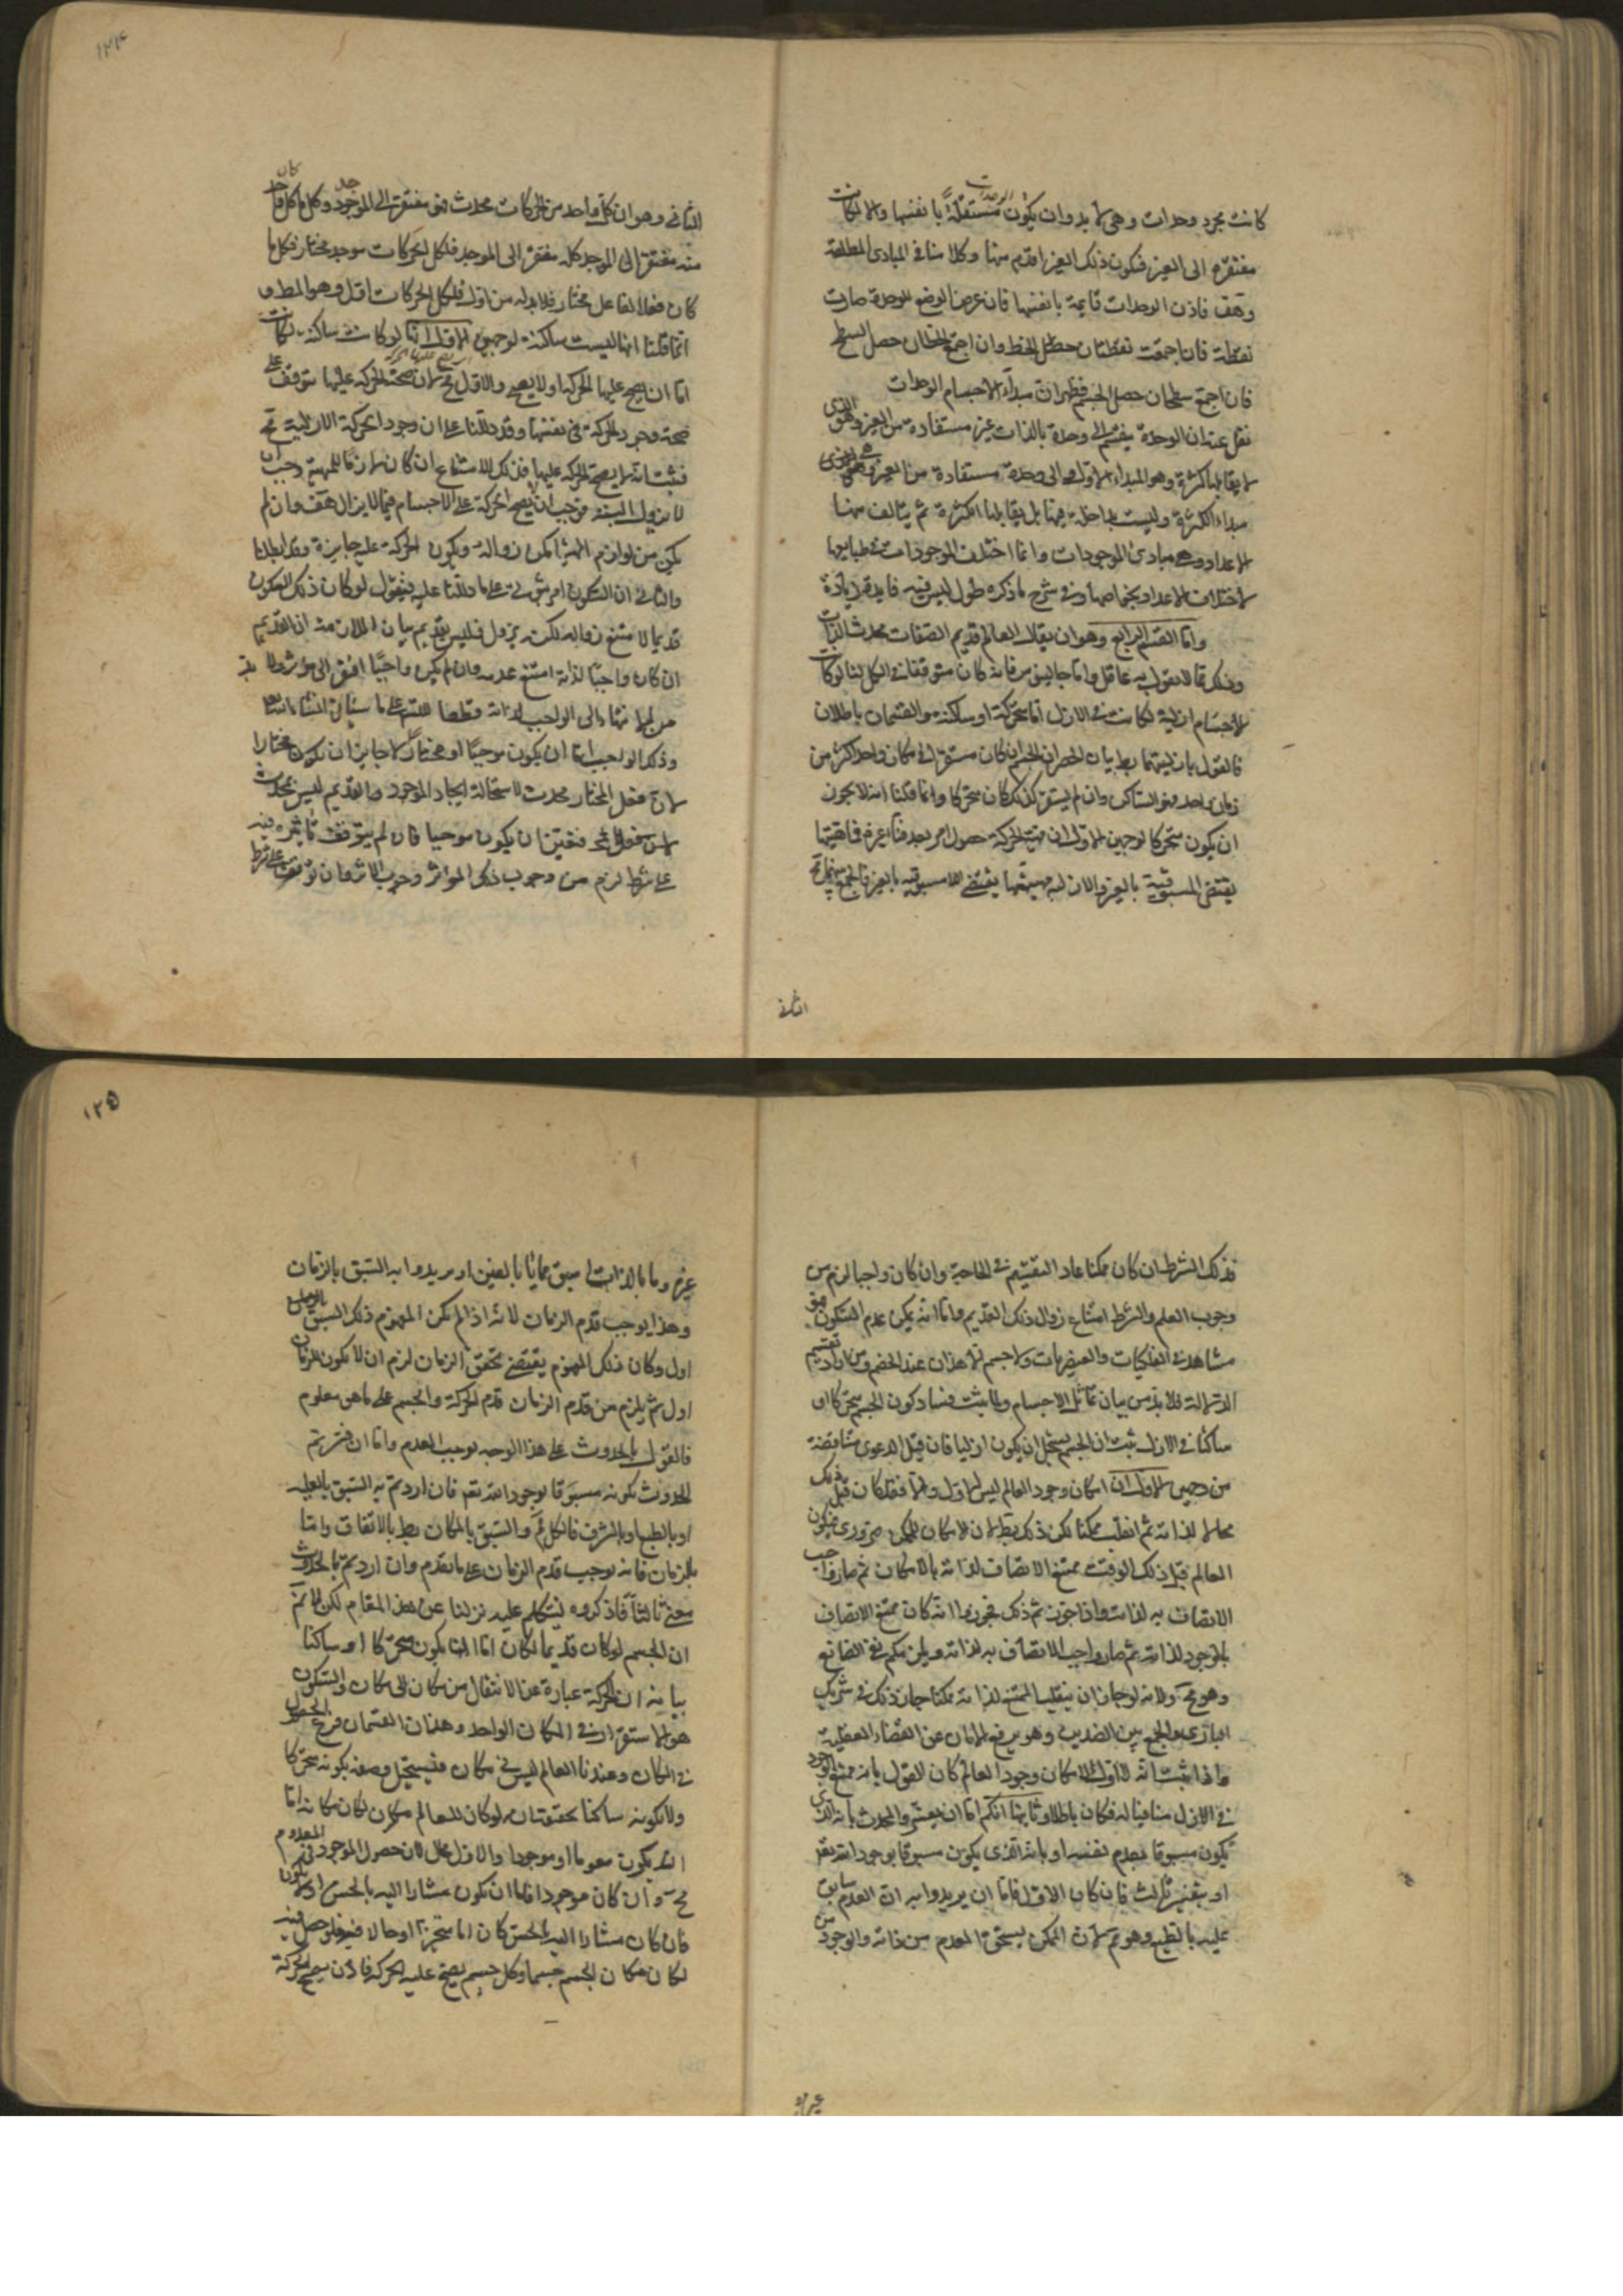 كانت مجرد وحدات وهى لا بد وان يكون الوحدات مستقلة بانفسها والا لكانت
مفتقره الى الغير فيكون ذلك الغير اقدم منها وكلامنا فى المبادى المطلقة
وهف فاذن الوحدات قايمة بانفسها فان عرض الوضع للوحدة صارت
نقطة فان اجتمعت نقطتان حصل الخط وان اجتمع الخطان حصل السطح
فان اجتمع سطحان حصل الجسم فظهر ان مبداء الاجسام الوحدات
نقل عنه ان الوحدة ينقسم الى وحدة بالذات غير مستفادة من الغير وهى الذى
لا يقابلها كثرة وهو المبداء الاول والى وحدة مستفادة من الغير وهى
مبداء الكثرة وليست بداخلة فيها بل يقابلها الكثرة ثم يتالف منها
الاعداد وهى مبادئ الموجودات وانما اختلف الموجودات فى طبايعها
لاختلاف الاعداد بخواصها وفى شرح ما ذكره طول ليس فيه فايدة زيادة
واما القسم الرابع وهو ان يقال العالم قديم الصفات محدث الذات
وذلك مما لا يقول به عاقل واما جالينوس فانه كان متوقفا فى الكل لنا لو كانت
الاجسام ازلية لكانت فى الازل اما متحركة او ساكنة والقسمان باطلان
فالقول بازليتها بط بيان الحصر ان الجسم ان كان مستقرا فى مكان واحد اكثر من
زمان واحد فهو الساكن وان لم يستقر كذلك كان متحركا وانما قلنا انه لا يجوز
ان يكون متحركا لوجهين الاول ان مهية الحركة حصول امر بعد فناء غيره فماهيتها
يقتضى المسبوقية بالغير والازلية مهيتها يقتضى اللامسبوقيه بالغير فالجمع بينهما مح
الثانى
١٢٤
الثانى وهو ان كل واحد من الحركات محدث فهو مفتقر الى الموجد وكل ما كان كل واحد
منه مفتقرا الى الموجد كله مفتقر الى الموجد فلكل الحركات موجد مختار فكل ما
كان فعلا لفاعل مختار فلا بد له من اول فلكل الحركات اول وهو المط و
انما قلنا انها ليست ساكنة لوجهين الاول انها لو كانت ساكنة لكانت
اما ان يصح عليها الحركة او لا يصح والاول مح لان صحة الحركة عليها يتوقف على
صحة وجود الحركة فى نفسها وقد دللنا على ان وجود الحركة الازلية مح
فثبت انه لا يصح الحركة عليها فذلك الامتناع ان كان لازما للمهية وجب ان
لا يزول البتة فوجب ان لا يصح الحركة على الاجسام فيما لا يزال هف وان لم
يكن من لوازم المهية امكن زواله ويكون الحركة عليه جايزة وقد ابطلنا
والثانى ان السكون امر ثبوتى على ما دللنا عليه فنقول لو كان ذلك السكون
قديما لامتنع زواله لكنه يزول فليس بقديم بيان الملازمة ان القديم
ان كان واجبا لذاته امتنع عدمه وان لم يكن واجبا افتقر الى مؤثر ولا بد
من الانتهاء الى الواجب لذاته قطعا للتس على ما سياتى انشاء الله
وذلك الواجب اما ان يكون موجبا او مختارا لا جايز ان يكون مختارا
لان فعل المختار محدث لاستحالة ايجاد الموجود والقديم ليس بمحدث
فتعين ان يكون موجبا فان لم يتوقف تاثيره فيه
على شرط لزم من وجوب ذلك المؤثر وجوب الاثر وان توقف على شرط
فذلك الشرط ان كان ممكنا عاد التقسيم فى الحاجة وان كان واجبا لزم من
وجوب العلة والشرط امتناع زوال ذلك القديم واما انه يمكن عدم السكون فهو
مشاهد فى الفلكيات والعنصريات ولا جسم الا هذان عند الخصم ومن اراد تعميم
الدلالة فلا بد من بيان تماثل الاجسام ولما ثبت فساد كون الجسم متحركا او
ساكنا فى الازل ثبت ان الجسم يستحيل ان يكون ازليا فان قيل الدعوى متناقضة
من وجهين الاول ان امكان وجود العالم ليس له اول والا فقد كان قبل ذلك
محالا لذاته ثم انقلب ممكنا لكن ذلك بط لان الامكان للممكن ضرورى فيكون
العالم قبل ذلك الوقت ممتنع الاتصاف لذاته بالامكان ثم صار واجب
الاتصاف به لذاته واذا جوز ثم ذلك فجوزوا انه كان ممتنع الاتصاف
بالوجود لذاته ثم صار واجب الاتصاف به لذاته ويلزمكم نفى الصانع
وهو مح ولانه لو جاز ان ينقلب الممتنع لذاته ممكنا جاز ذلك فى شريك
البارى والجمع بين الضدين وهو يرفع الامان عن القضايا العقلية
واذا ثبت انه لا اول لامكان وجود العالم كان القول بانه ممتنع الوجود
فى الازل منافيا له فكان باطلا وثانيها انكم اما ان يفسروا المحدث بانه الذى
يكون مسبوقا بعدم نفسه او بانه الذى يكون مسبوقا بوجود الله تع
او بتفسير ثالث فان كان الاول فاما ان يريدوا به ان العدم سابق
عليه بالطبع وهو مسلم لان الممكن يستحق العدم من ذاته والوجود من
غيره
١٢٥
غيره وما بالذات اسبق مما بالغير او يريدوا به السبق بالزمان
وهذا يوجب قدم الزمان لانه اذا لم يكن المفهوم ذلك السبق بالزمان
اول وكان ذلك المفهوم يقتضى تحقق الزمان لزم ان لا يكون للزمان
اول ثم يلزم من قدم الزمان قدم الحركة والجسم على ما هو معلوم
فالقول بالحدوث على هذا الوجه يوجب القدم واما ان فسرتم
الحدوث بكونه مسبوقا بوجود الله تع فان اردتم به السبق بالعلية
او بالطبع او بالشرف فالكل مسلم والسبق بالمكان بط بالاتفاق واما
بالزمان فانه يوجب قدم الزمان على ما تقدم وان اردتم بالحدوث
معنى ثالثا فاذكروه لنتكلم عليه نزلنا عن هذا المقام لكن لا نسلم
ان الجسم لو كان قديما لكان اما ان يكون متحركا او ساكنا
بيانه ان الحركة عبارة عن الانتقال من مكان الى مكان والسكون
هو الاستقرار فى المكان الواحد وهذان القسمان فرع الحصول
فى المكان وعندنا العالم ليس فى مكان فيستحيل وصفه بكونه متحركا
ولا بكونه ساكنا تحقيقه انه لو كان للعالم مكان لكان مكانه اما
ان يكون معدوما او موجودا والاول محال لان حصول الموجود فى المعدوم
مح وان كان موجودا فاما ان يكون مشارا اليه بالحس او لا يكون
فان كان مشارا اليه بالحس كان اما متحيزا او حالا فيه فلو حصل فيه
لكان مكان الجسم جسما وكل جسم يصح عليه الحركة فاذن يصح الحركة